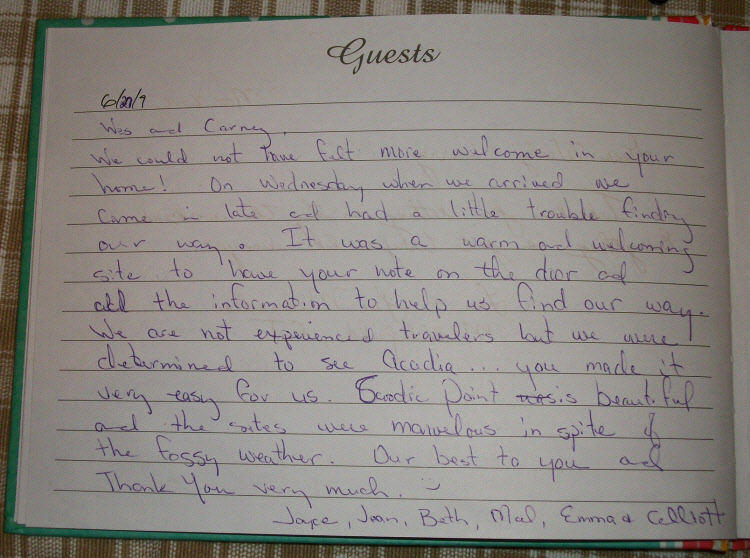 Guests
6/27/9
Wes and Carney,
We could not have felt more welcome in your
home! On Wednesday when we arrived we
came in late ad had a little trouble finding
our way. It was a warm and welcoming
site to have your note on the door ad
all the information to help us find our way.
We are not experienced travelers but we were
determined to see Acadia... you made it
very easy for us. Scoodic Point is beautiful
and the sites were marvelous in spite of
the foggy weather. Our best to you and
Thank You very much.
Joan, Beth, Mal, Emma &